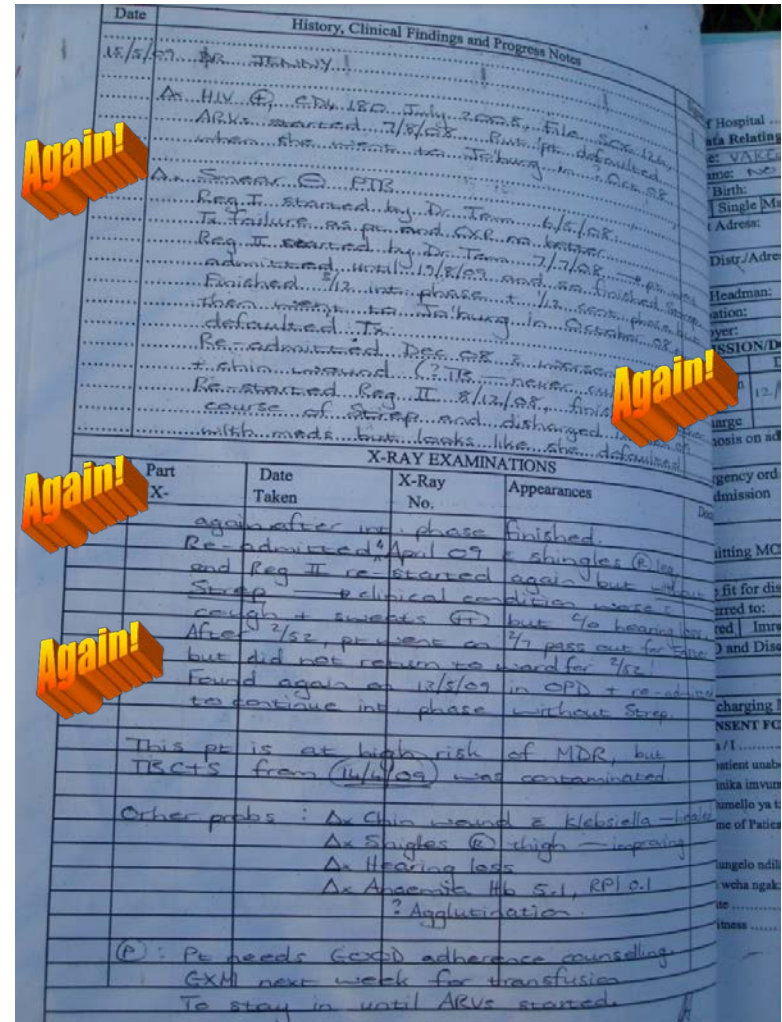 Date
History, Clinical Findings and Progress Notes
15/5/09 DR JENNY
Δx HIV ⊕, CD4 180 July 2008, File SCX 124,
ARVs started 7/8/08. But pt defaulted
when she went to Jo'burg in ? Oct 08
Again!
Δx Smear ⊖ PTB
Reg I started by Dr Tom 6/5/08
Tx failure as pt and CXR no better
Reg II started by Dr Tom 7/7/08 → pt
admitted until 19/8/09 and so finished strep
Finished 2/12 int phase + 1/12 phase but
then went to Jo'burg in October 08
defaulted Tx.
Re-admitted Dec 08
+ chin wound (? TB — never
Again!
Re-started Reg II 8/12/08, finished
course of Strep and discharged
with meds but looks like she defaulted
X-RAY EXAMINATIONS
Part
X-
Date
Taken
X-Ray
No.
Appearances
Again!
again after int phase finished.
Re-admitted April 09 c shingles Ⓡ leg
and Reg II re-started again but without
Strep → clinical condition worse c
cough + sweats ⊕ but c/o hearing loss.
After 2/52, pt went on 2/7 pass out for Easter
but did not return to ward for 2/52!
Again!
Found again on 12/5/09 in OPD + re-admitted
to continue int phase without Strep
This pt is at high risk of MDR, but
TB C+S from 14/4/09 was contaminated.
Other probs : Δx Chin wound c Klebsiella — healed
Δx Shigles Ⓡ thigh — improving
Δx Hearing loss
Δx Anaemia Hb 5.1, RPI 0.1
? Agglutination
Ⓟ : Pt needs GOOD adherence counselling.
GXM next week for transfusion
To stay in until ARVs started.
f Hospital
ata Relating
Birth:
Single Ma
Adress:
Distr./Adre
Headman:
12/